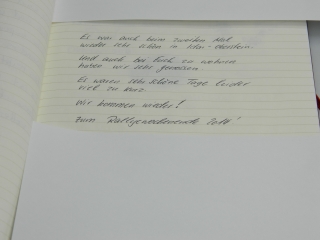 Es war auch beim zweiten Mal
wieder sehr schön in Idar-Oberstein.
Und auch bei Euch zu wohnen
haben wir sehr genossen.
Es waren sehr schöne Tage leider
viel zu kurz.
Wir kommen wieder!
Zum Rallyewochenende